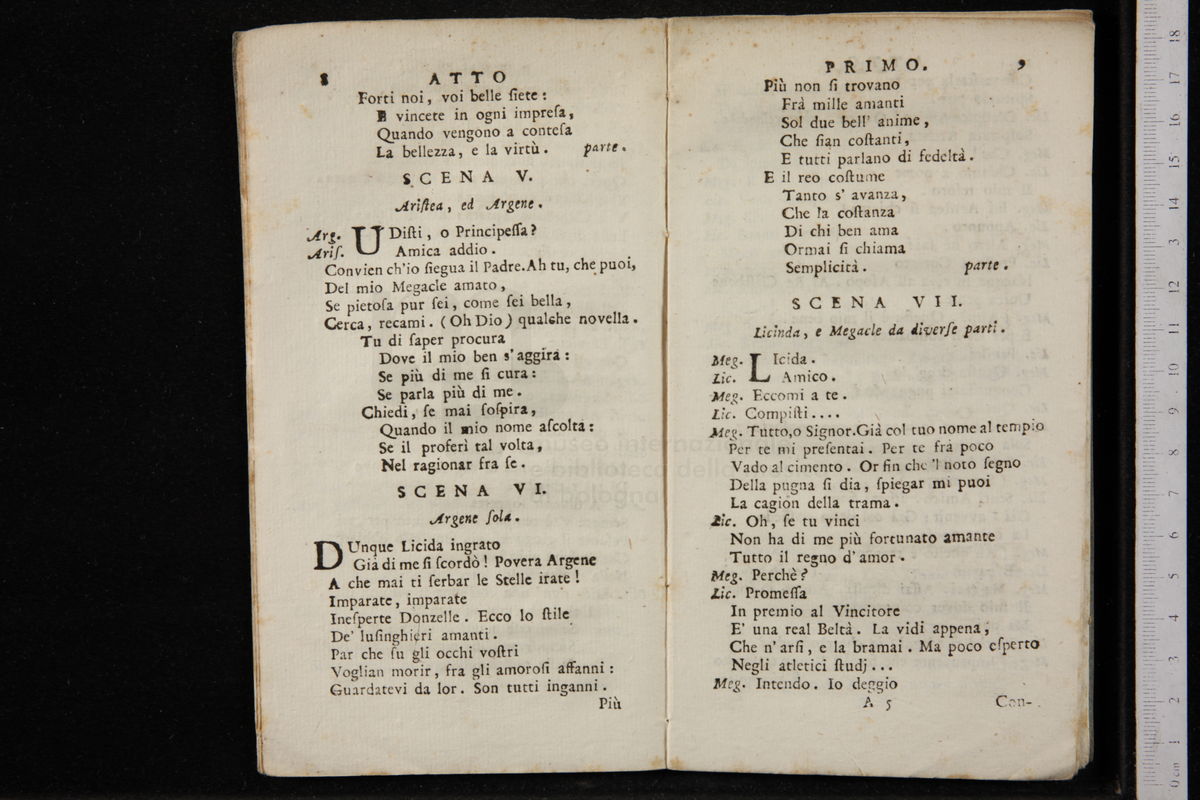 8 ATTO
Forti noi, voi belle ſiete:
E vincete in ogni impreſa,
Quando vengono a conteſa
La bellezza, e la virtù. parte.
SCENA V.
Ariſtea, ed Argene.
Arg. UDiſti, o Principeſſa?
Ariſ. Amica addio.
Convien ch'io ſiegua il Padre. Ah tu, che puoi,
Del mio Megacle amato,
Se pietoſa pur ſei, come ſei bella,
Cerca, recami. (Oh Dio) qualche novella.
Tu di ſaper procura
Dove il mio ben s'aggira:
Se più di me ſi cura:
Se parla più di me.
Chiedi, ſe mai ſoſpira,
Quando il mio nome aſcolta:
Se il proferì tal volta,
Nel ragionar fra ſe.
SCENA VI.
Argene ſola.
DUnque Licida ingrato
Già di me ſi ſcordò! Povera Argene
A che mai ti ſerbar le Stelle irate!
Imparate, imparate
Ineſperte Donzelle. Ecco lo ſtile
De' luſinghieri amanti.
Par che ſu gli occhi voſtri
Voglian morir, fra gli amoroſi affanni:
Guardatevi da lor. Son tutti inganni.
Più
PRIMO. 9
Più non ſi trovano
Frà mille amanti
Sol due bell' anime,
Che ſian coſtanti,
E tutti parlano di fedeltà.
E il reo coſtume
Tanto s' avanza,
Che la coſtanza
Di chi ben ama
Ormai ſi chiama
Semplicità. parte.
SCENA VII.
Licinda, e Megacle da diverſe parti.
Meg. LIcida.
Lic. Amico.
Meg. Eccomi a te.
Lic. Compiſti....
Meg. Tutto, o Signor. Già col tuo nome al tempio
Per te mi preſentai. Per te frà poco
Vado al cimento. Or fin che 'l noto ſegno
Della pugna ſi dia, ſpiegar mi puoi
La cagion della trama.
Lic. Oh, ſe tu vinci
Non ha di me più fortunato amante
Tutto il regno d' amor.
Meg. Perchè?
Lic. Promeſſa
In premio al Vincitore
E' una real Beltà. La vidi appena,
Che n' arſi, e la bramai. Ma poco eſperto
Negli atletici ſtudj...
Meg. Intendo. Io deggio
A 5 Con-
museo internazionale
e biblioteca della
di bologna
0 cm 1 2 3 4 5 6 7 8 9 10 11 12 13 14 15 16 17 18